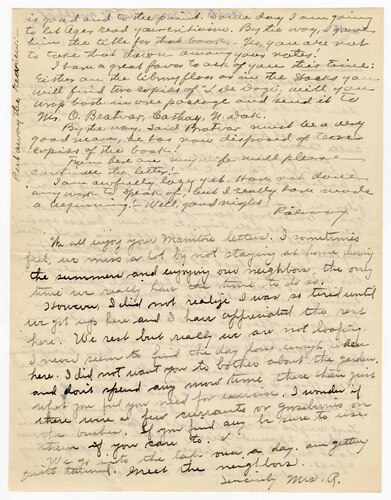 is good and to the point. Some day I am going
to let Ager read your criticism. By the way, I gave
him the title for that book. No, you are not
to take that down among your notes!
I have a great favor to ask of you this time:
Either on the library floor or in the stacks you
will find two copies of "I de Dage", will you
wrap both in one package and send it to
Mr. O. Bratvar, Cathay, N. Dak.
By the way, said Bratvar must be a very
good man, he has now disposed of ten
copies of the book!
From here on my wife will please
continue the letter!
I am awfully lazy yet. Have not done
any work to speak of, but I really have made
a beginning. — Well, good night!
Rölvaag
We all enjoy your Manitou letters. I sometimes
feel, we miss a lot by not staying at home during
the summer and enjoying our neighbors, the only
time we really have the time to do so.
However, I did not realize I was so tired until
we got up here and I have appreciated the rest
here. We rest but really we are not loafing.
I never seem to find the day long enough
here. I did not want you to bother about the garden
and don't spend any more time there than just
what you feel you need for exercise. I wonder if
there were a few currants or gooseberries on
the bushes. If you find any be sure to use
them if you care to.
We go into the lake once a day. am getting
quite tanned. Greet the neighbors.
Sincerely Mrs. R.